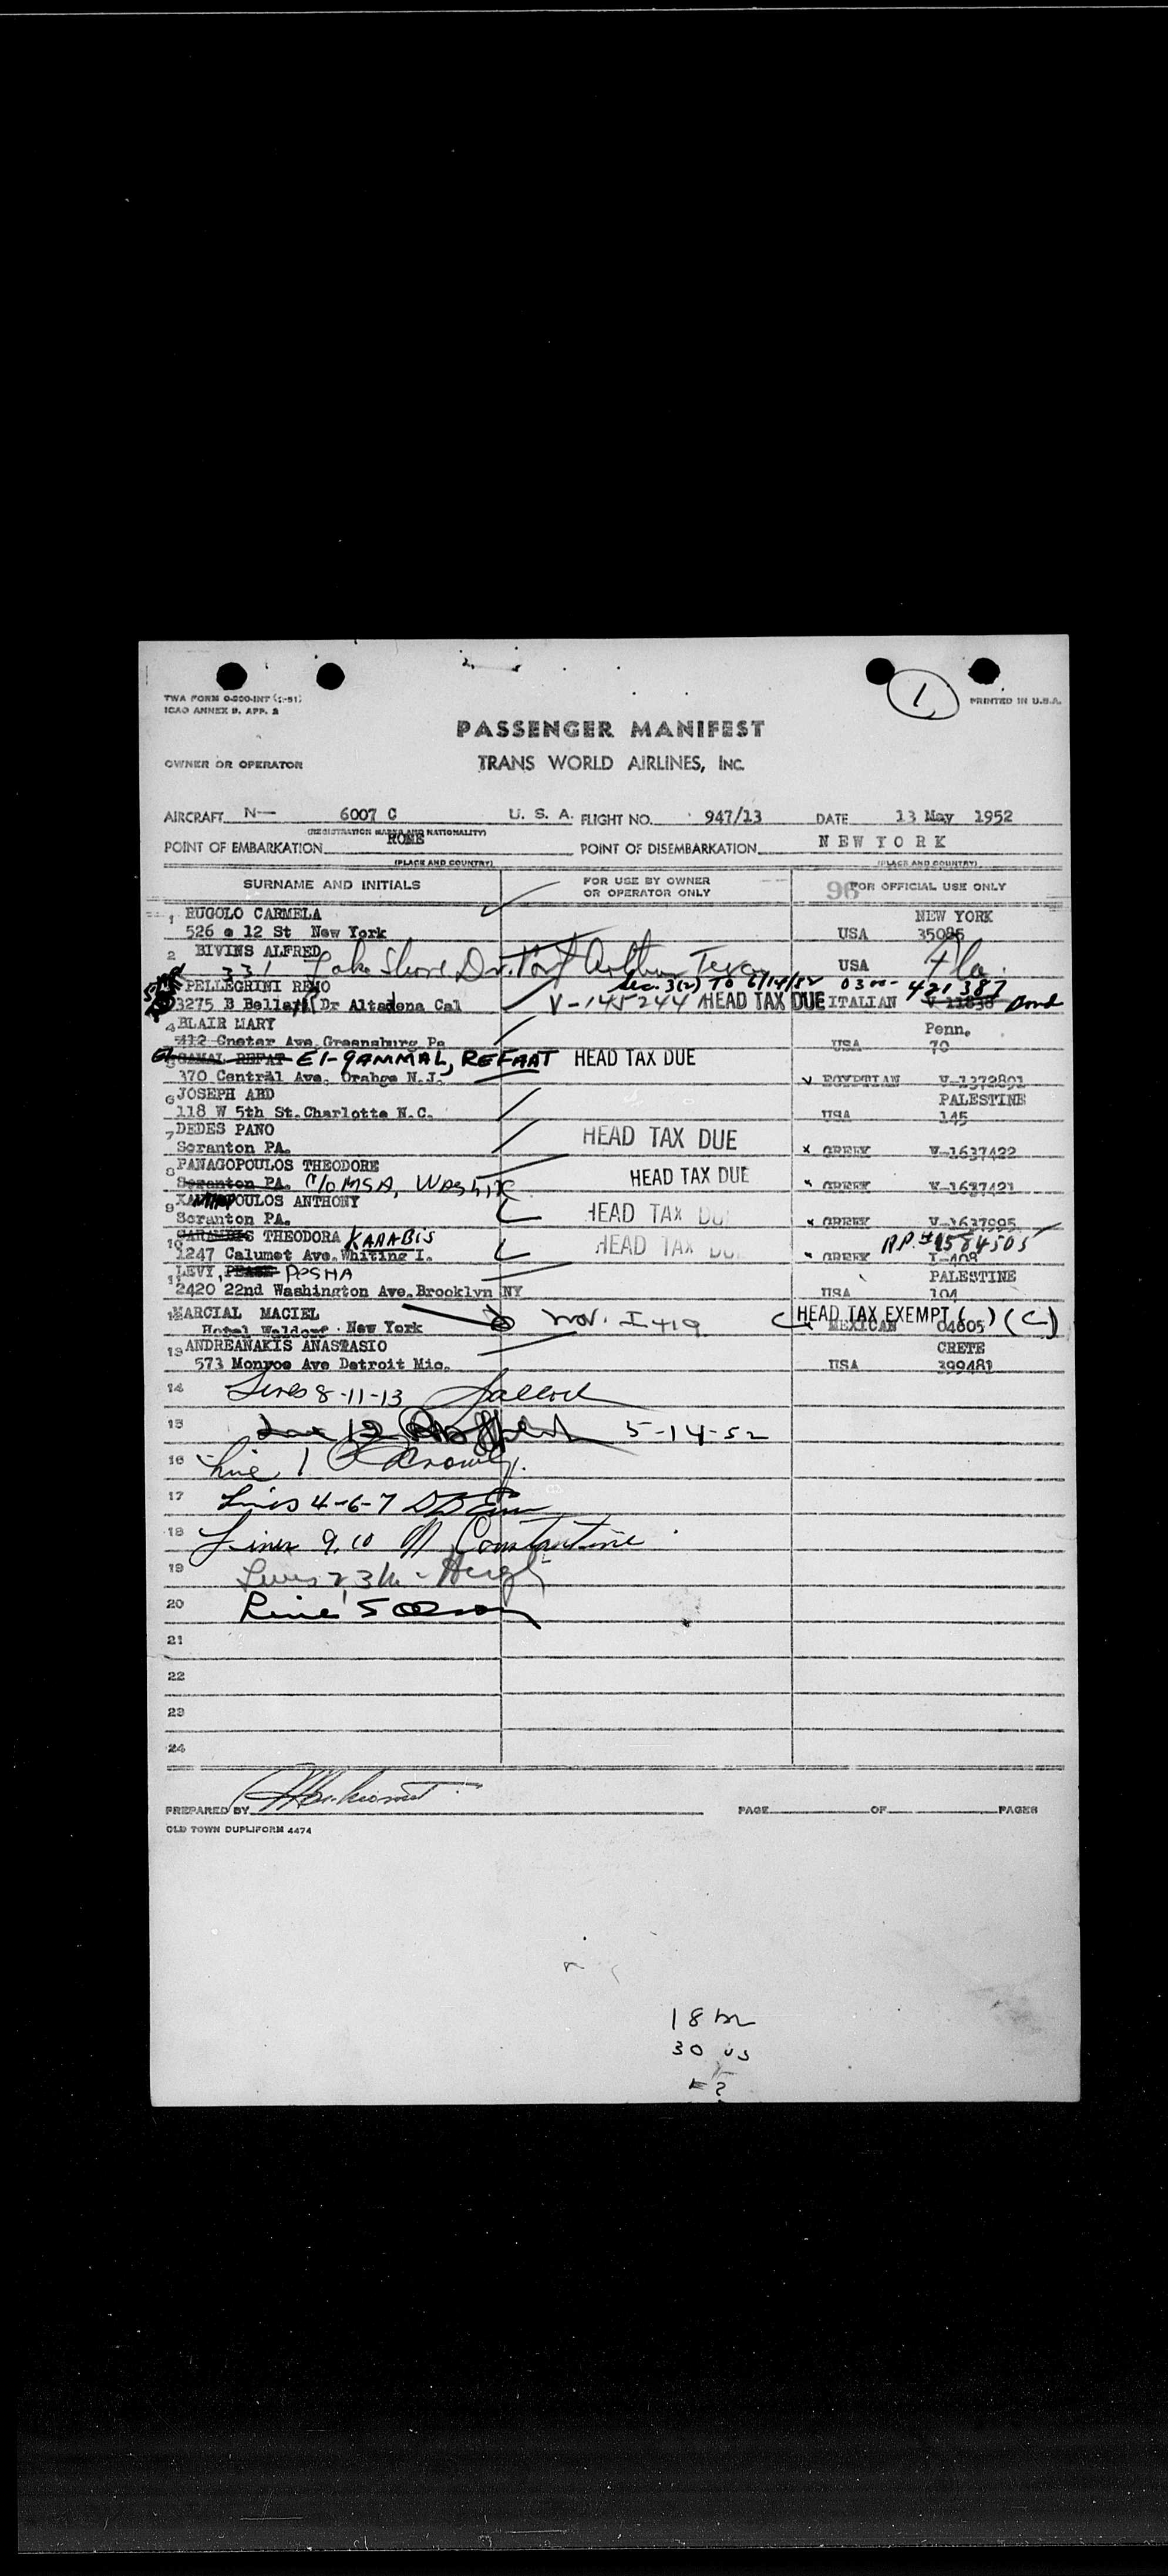 TWA FORM 0-200-INT (1-51)
ICAO ANNEX 9. APP. 2
1
PRINTED IN U.S.A.
PASSENGER MANIFEST
OWNER OR OPERATOR TRANS WORLD AIRLINES, INC.
AIRCRAFT N— 6007 C U. S. A. FLIGHT NO. 947/13 DATE 13 May 1952
(REGISTRATION MARKS AND NATIONALITY)
POINT OF EMBARKATION ROME POINT OF DISEMBARKATION NEW YORK
(PLACE AND COUNTRY) (PLACE AND COUNTRY)
SURNAME AND INITIALS FOR USE BY OWNER OR OPERATOR ONLY 96 FOR OFFICIAL USE ONLY
1 RUGOLO CARMELA NEW YORK
526 e 12 St New York USA 35086
2 BIVINS ALFRED
331 Lake Shore Dr. Port Arthur Texas USA Fla.
PELLEGRINI RENO Sec. 3(2) TO 6/14/52 0300- 421387
3275 B Dr Altadena Cal V-145244 HEAD TAX DUE ITALIAN V-11838 Bond
4 BLAIR MARY Penn.
412 Ave. Greensburg Pa USA 70
GAMAL REFAT El-GAMMAL, REFAAT HEAD TAX DUE
370 Central Ave. Orabge N.J. EGYPTIAN V-1372891
6 JOSEPH ABD PALESTINE
118 W 5th St. Charlotte N.C. USA 145
7 DEDES PANO HEAD TAX DUE
Scranton PA. x GREEK V-1637422
8 PANAGOPOULOS THEODORE HEAD TAX DUE
Scranton PA. C/O MSA, Wash. x GREEK V-1637421
9 XANTHOPOULOS ANTHONY HEAD TAX DUE
Scranton PA. x GREEK V-1637995
10 THEODORA KARABIS HEAD TAX DUE RP.# 9584505
1247 Calumet Ave. Whiting I. x GREEK I-408
11 LEVY, PESHA PALESTINE
2420 22nd Washington Ave. Brooklyn NY USA 104
12 MARCIAL MACIEL Nov. I 419 HEAD TAX EXEMPT ( ) (C)
Hotel Waldorf New York MEXICAN 04605
13 ANDREANAKIS ANASTASIO CRETE
573 Monroe Ave Detroit Mic. USA 399481
14 Lines 8-11-13
15 Line 12 5-14-52
16 Line 1
17 Lines 4-6-7
18 Lines 9.10 M Constantine
19 Lines 2, 3
20 Line 5
21
22
23
24
PREPARED BY PAGE OF PAGES
OLD TOWN DUPLIFORM 4474
18
30 US